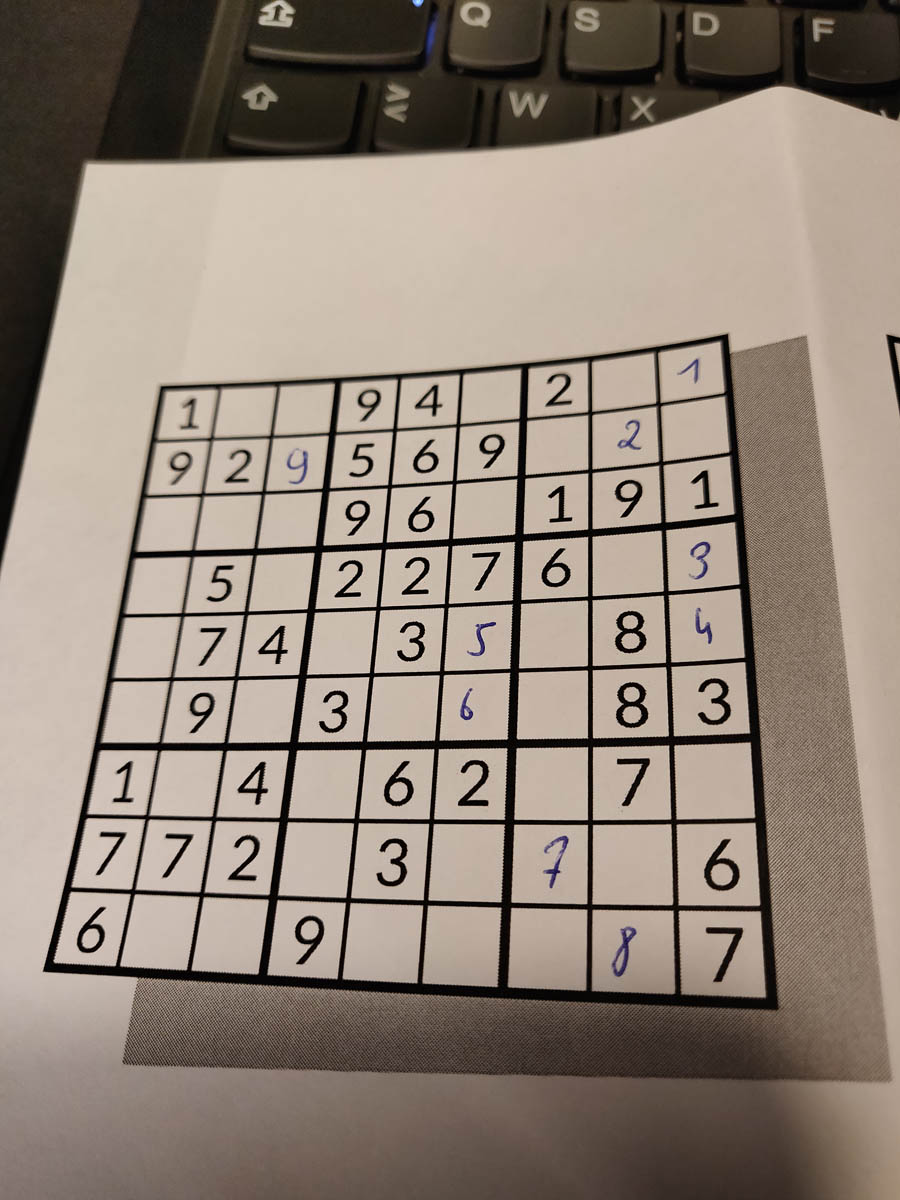 Q S D F
W X
1 9 4 2 1
9 2 9 5 6 9 2
9 6 1 9 1
5 2 2 7 6 3
7 4 3 5 8 4
9 3 6 8 3
1 4 6 2 7
7 7 2 3 7 6
6 9 8 7